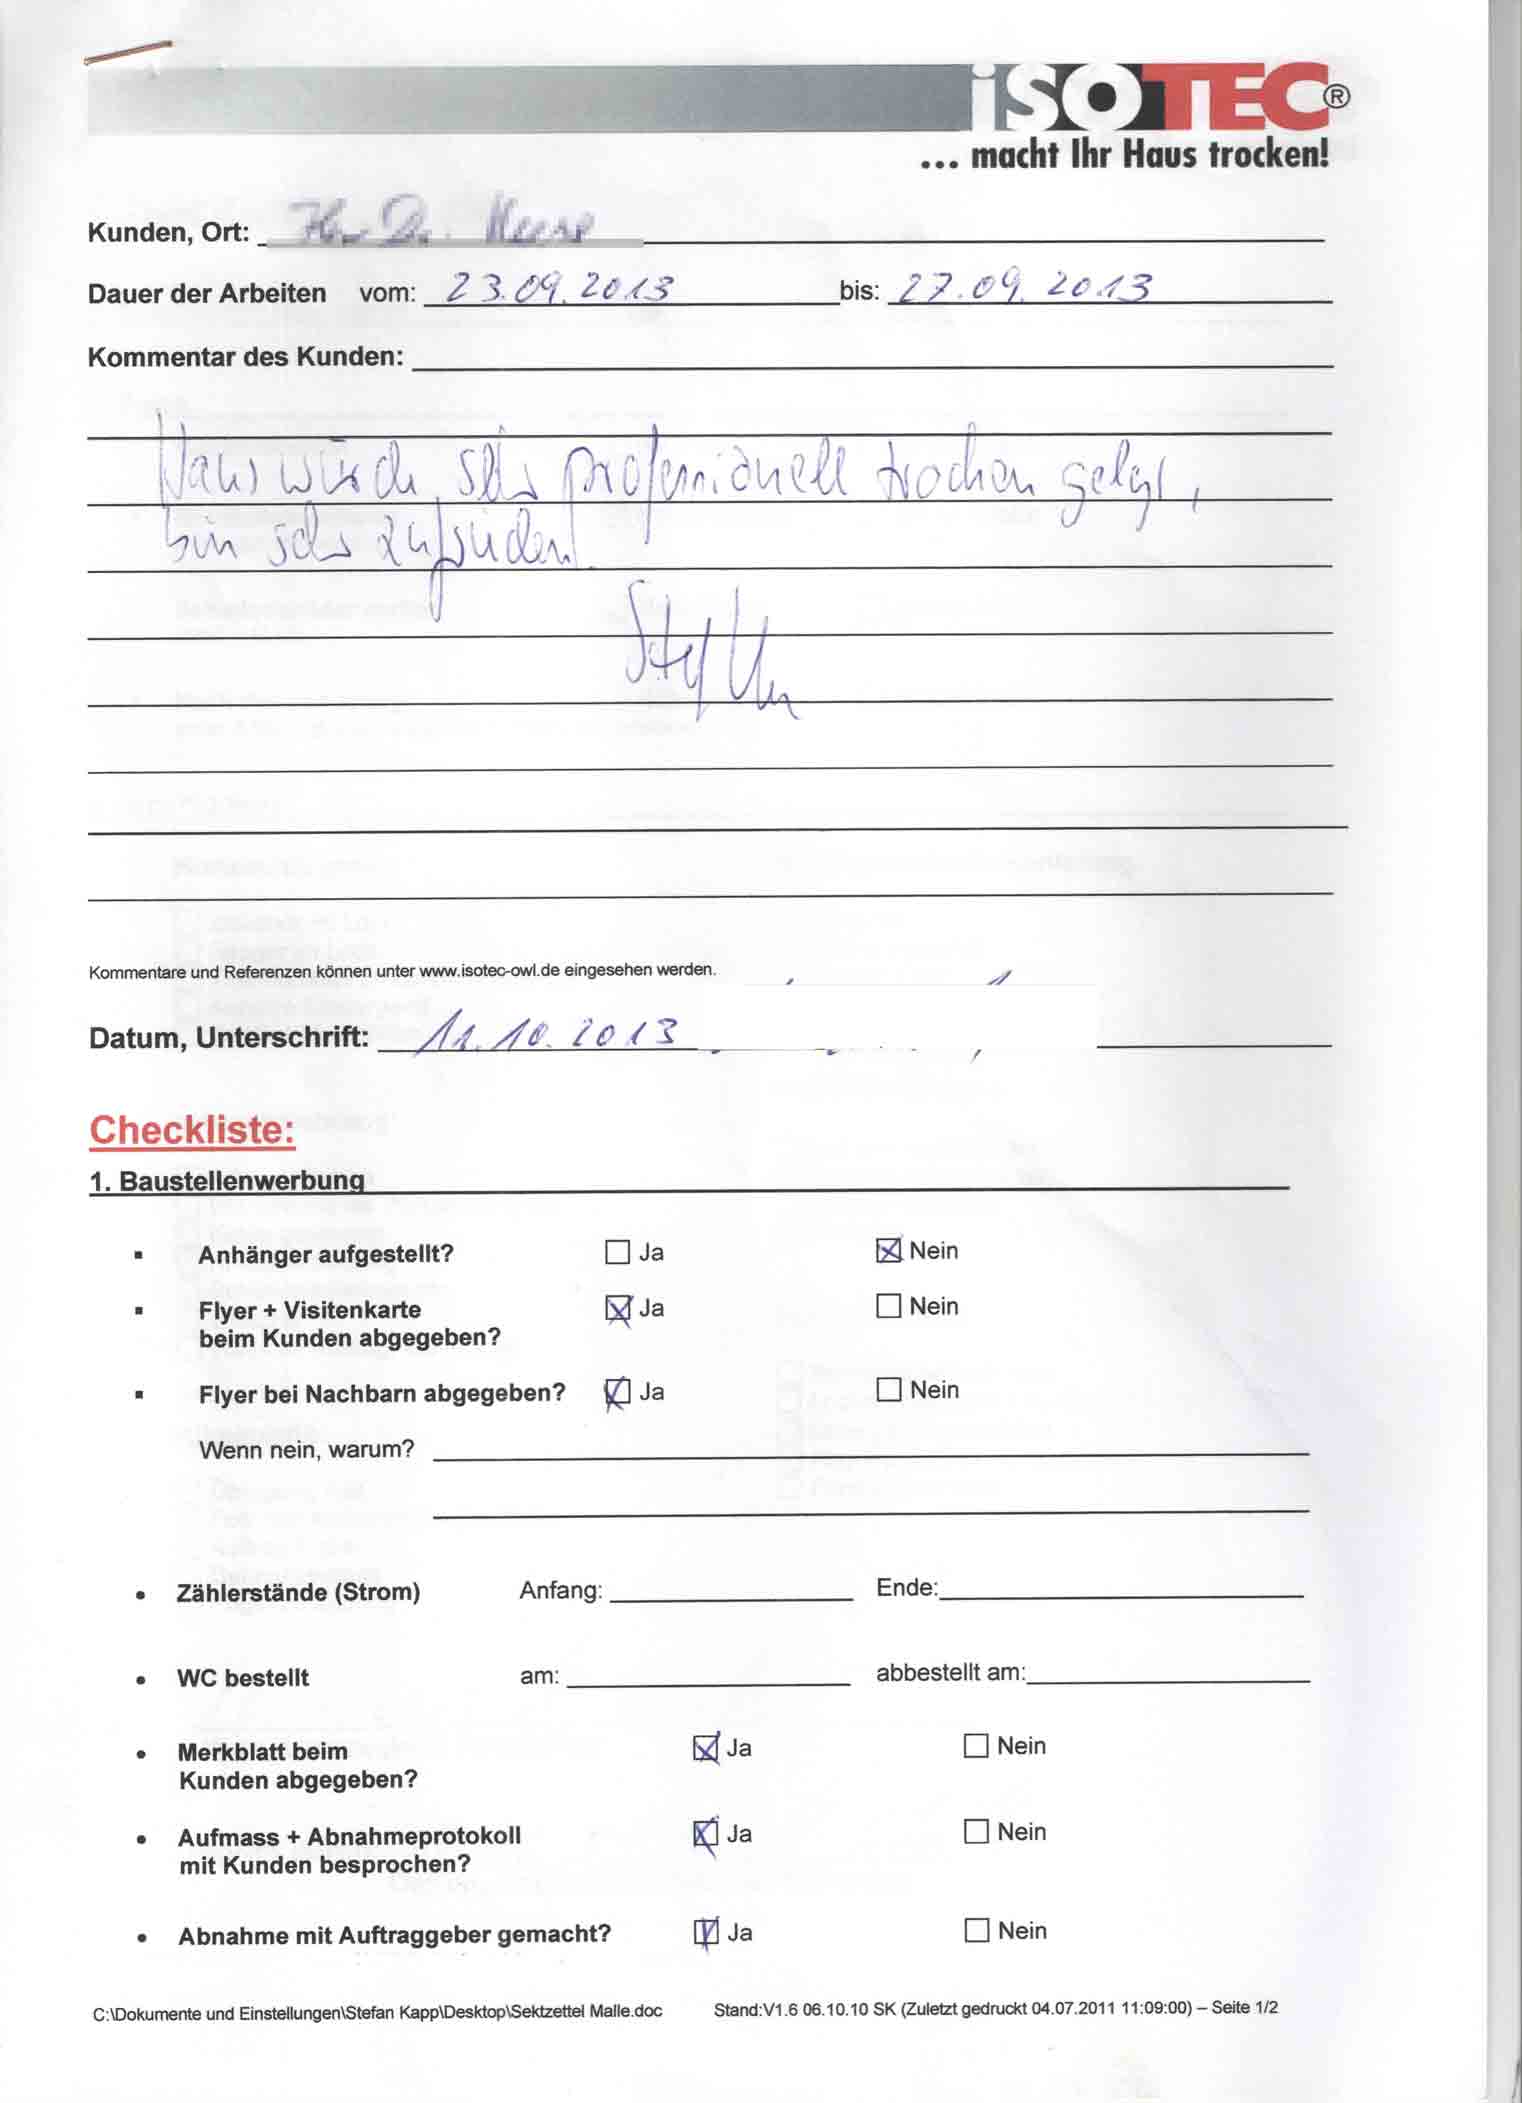 iSOTEC®
... macht Ihr Haus trocken!
Kunden, Ort:
Dauer der Arbeiten vom: 23.09.2013 bis: 27.09.2013
Kommentar des Kunden:
Haus wurde sehr professionell trocken gelegt,
bin sehr zufrieden!
Kommentare und Referenzen können unter www.isotec-owl.de eingesehen werden.
Datum, Unterschrift: 11.10.2013
Checkliste:
1. Baustellenwerbung
▪ Anhänger aufgestellt? ☐ Ja ☒ Nein
▪ Flyer + Visitenkarte ☒ Ja ☐ Nein
beim Kunden abgegeben?
▪ Flyer bei Nachbarn abgegeben? ☒ Ja ☐ Nein
Wenn nein, warum?
• Zählerstände (Strom) Anfang: Ende:
• WC bestellt am: abbestellt am:
• Merkblatt beim ☒ Ja ☐ Nein
Kunden abgegeben?
• Aufmass + Abnahmeprotokoll ☒ Ja ☐ Nein
mit Kunden besprochen?
• Abnahme mit Auftraggeber gemacht? ☒ Ja ☐ Nein
C:\Dokumente und Einstellungen\Stefan Kapp\Desktop\Sektzettel Malle.doc Stand:V1.6 06.10.10 SK (Zuletzt gedruckt 04.07.2011 11:09:00) – Seite 1/2